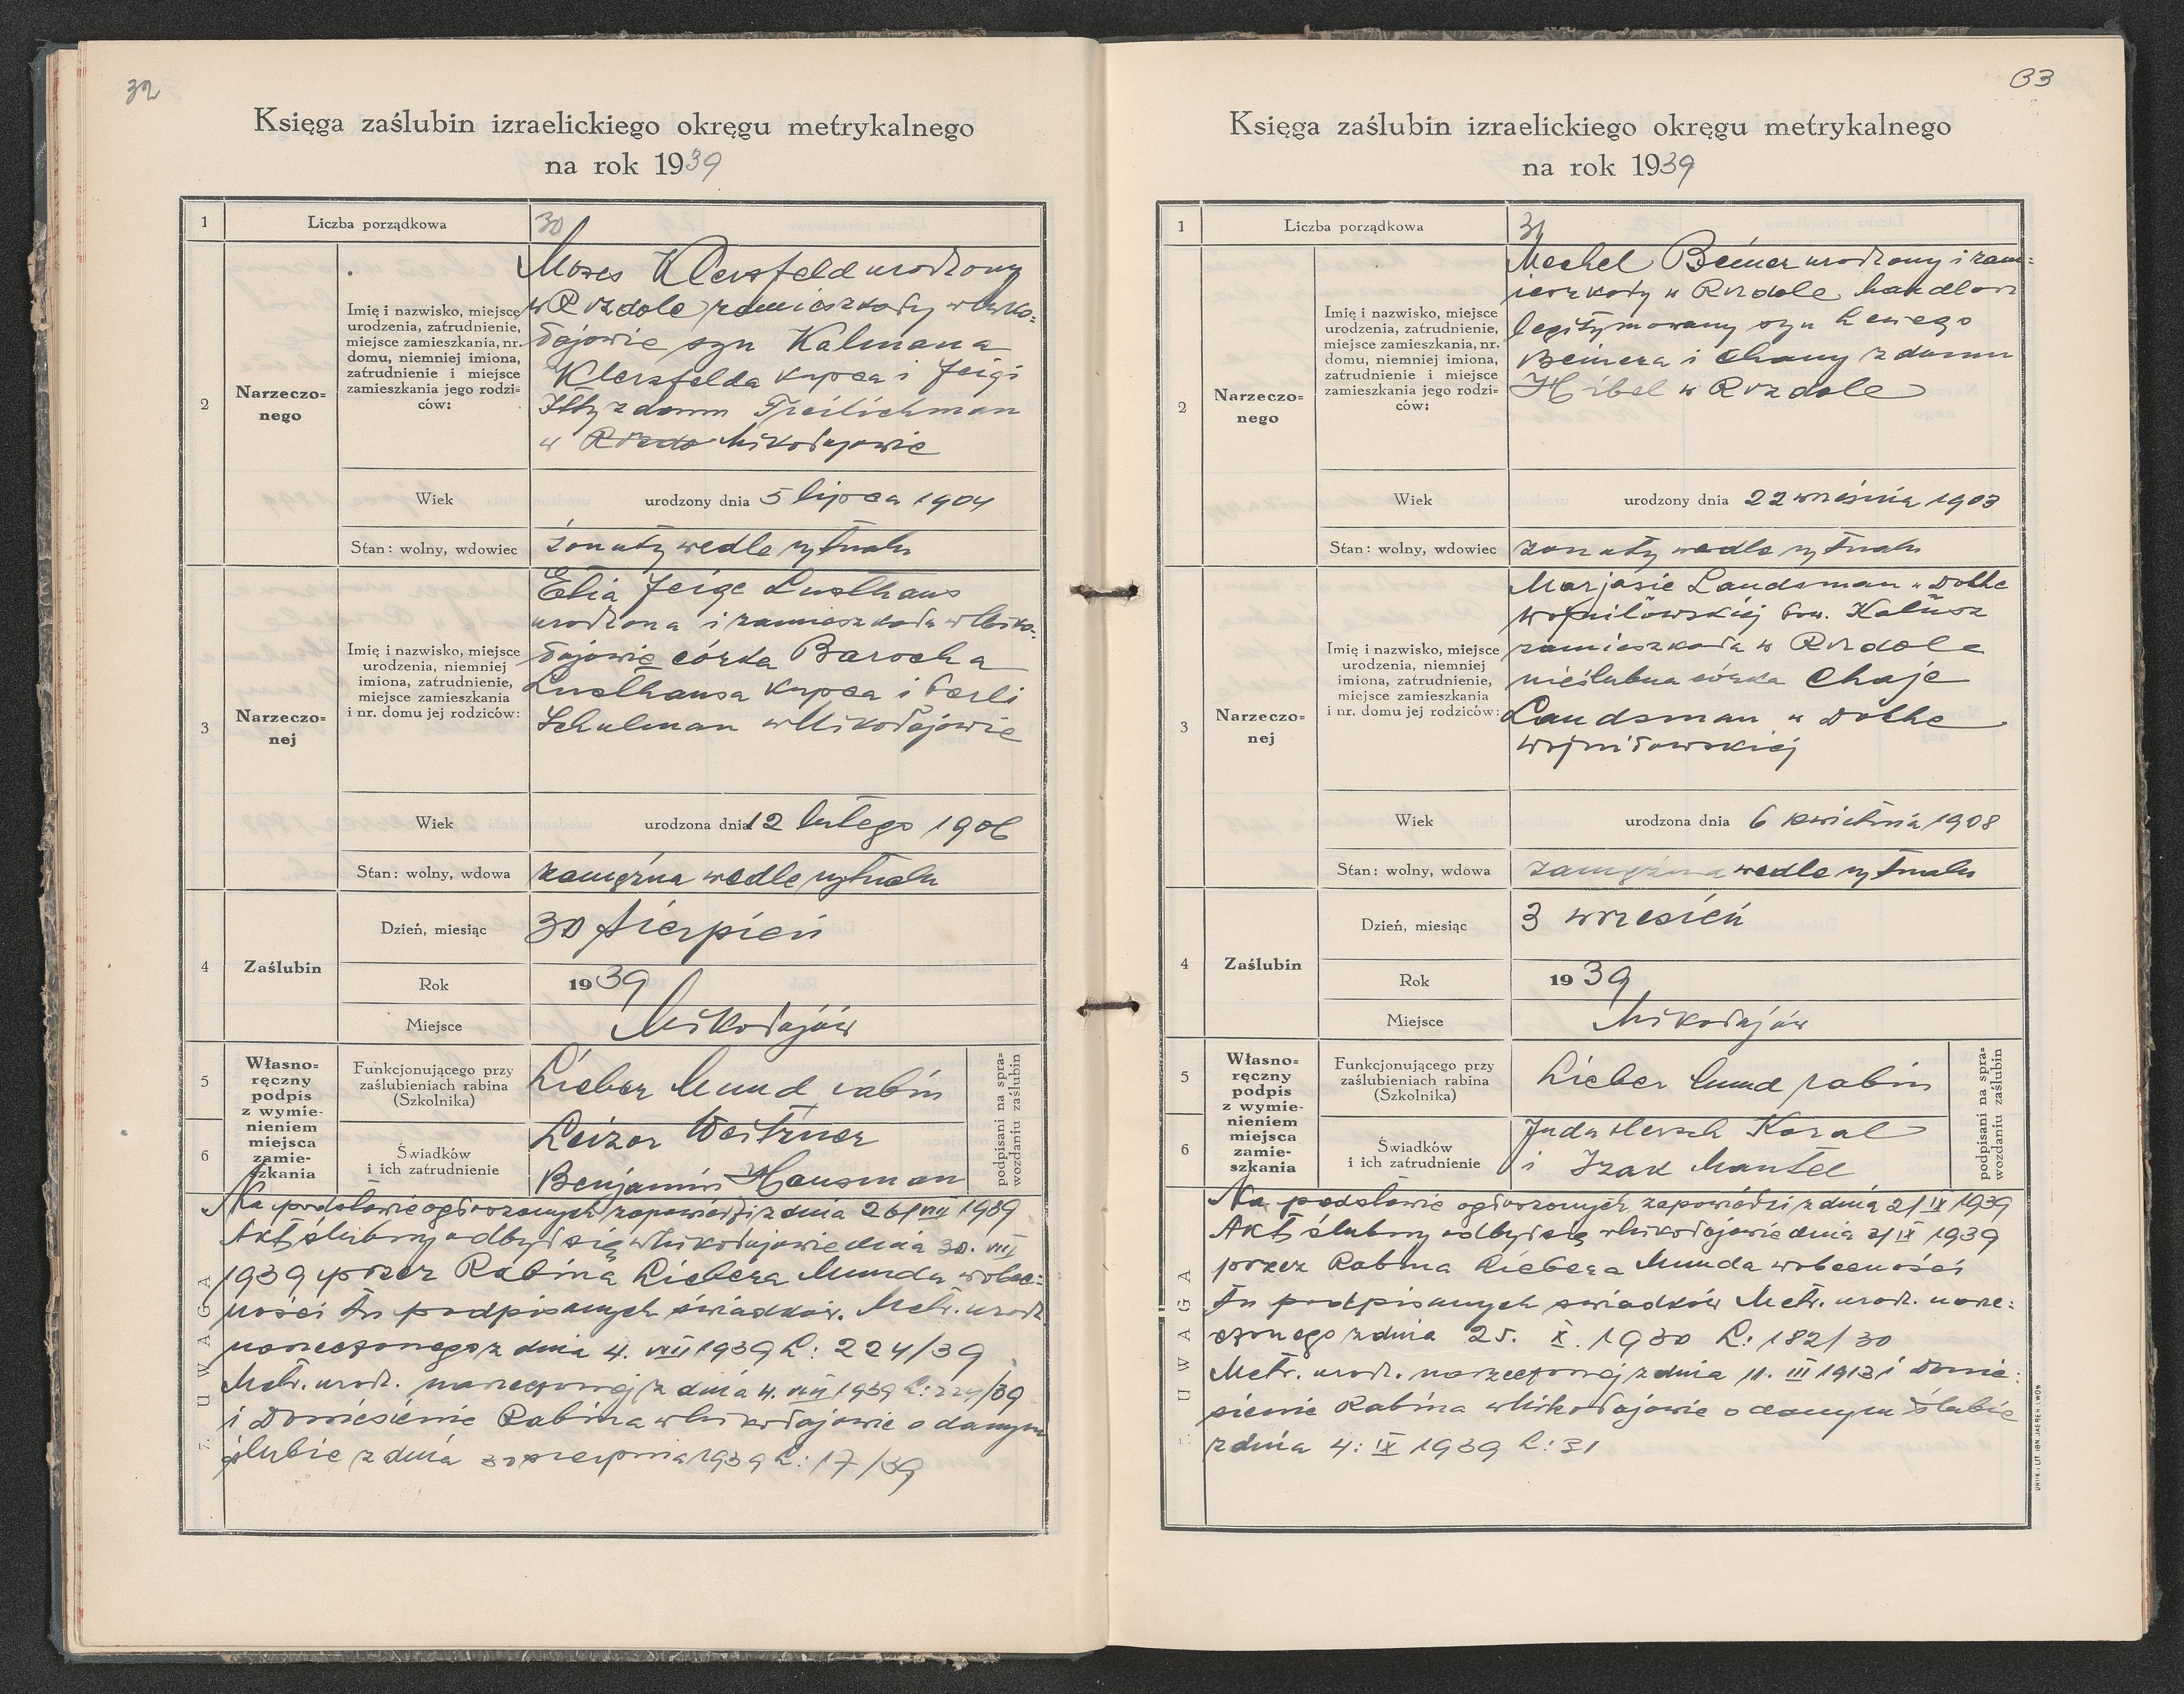 32
Księga zaślubin izraelickiego okręgu metrykalnego
na rok 1939
1
Liczba porządkowa
30
2
Narzeczo=
nego
Imię i nazwisko, miejsce
urodzenia, zatrudnienie,
miejsce zamieszkania, nr.
domu, niemniej imiona,
zatrudnienie i miejsce
zamieszkania jego rodzi=
ców:
Moses Klersfeld urodzony
w Rozdole zamieszkały w Miko=
łajowie syn Kalmana
Klersfelda kupca i Feigi
Itty z domu Freilichman
w Rozdo Mikołajowie
Wiek
urodzony dnia 5 lipca 1904
Stan: wolny, wdowiec
żonaty wedle rytuału
3
Narzeczo=
nej
Imię i nazwisko, miejsce
urodzenia, niemniej
imiona, zatrudnienie,
miejsce zamieszkania
i nr. domu jej rodziców:
Etia Feige Lusthaus
urodzona i zamieszkała w Miko=
łajowie córka Barocha
Lusthausa kupca i Perli
Schulman w Mikołajowie
Wiek
urodzona dnia 12 lutego 1906
Stan: wolny, wdowa
zamężna wedle rytuału
4
Zaślubin
Dzień, miesiąc
30 sierpień
Rok
1939
Miejsce
Mikołajów
5
6
Własno=
ręczny
podpis
z wymie-
nieniem
miejsca
zamie-
szkania
Funkcjonującego przy
zaślubieniach rabina
(Szkolnika)
Lieber Mund rabin
Świadków
i ich zatrudnienie
Leizor Weitzner
Benjamin Hausman
podpisani na spra=
wozdaniu zaślubin
7. UWAGA
Na podstawie ogłoszonych zapowiedzi z dnia 26/VIII 1939
Akt ślubny odbył się w Mikołajowie dnia 30. VIII
1939 przez Rabina Liebera Munda w obec=
ności tu podpisanych świadków. Metr. urodz.
narzeczonego z dnia 4. VIII 1939 L: 224/39
Metr. urodz. narzeczonej z dnia 4. VIII 1939 L: 224/39
i Doniesienie Rabina w Mikołajowie o danym
ślubie z dnia 30 sierpnia 1939 L: 17/39
33
Księga zaślubin izraelickiego okręgu metrykalnego
na rok 1939
1
Liczba porządkowa
31
2
Narzeczo=
nego
Imię i nazwisko, miejsce
urodzenia, zatrudnienie,
miejsce zamieszkania, nr.
domu, niemniej imiona,
zatrudnienie i miejsce
zamieszkania jego rodzi-
ców:
Mechel Beiner urodzony i zam=
ieszkały w Rozdole handlarz
legitymowany syn Leniego
Beinera i Chany z domu
Hibel w Rozdole
Wiek
urodzony dnia 22 września 1903
Stan: wolny, wdowiec
żonaty wedle rytuału
3
Narzeczo=
nej
Imię i nazwisko, miejsce
urodzenia, niemniej
imiona, zatrudnienie,
miejsce zamieszkania
i nr. domu jej rodziców:
Marjasie Landsman w Dołhe
wojniłowskiej pow. Kałusz
zamieszkała w Rozdole
nieślubna córka Chaje
Landsman w Dołhe
wojniłowskiej
Wiek
urodzona dnia 6 kwietnia 1908
Stan: wolny, wdowa
zamężna wedle rytuału
4
Zaślubin
Dzień, miesiąc
3 wrzesień
Rok
1939
Miejsce
Mikołajów
5
6
Własno=
ręczny
podpis
z wymie-
nieniem
miejsca
zamie=
szkania
Funkcjonującego przy
zaślubieniach rabina
(Szkolnika)
Lieber Mund rabin
Świadków
i ich zatrudnienie
Juda Hersch Koral
i Izak Mantel
podpisani na spra=
wozdaniu zaślubin
UWAGA
Na podstawie ogłoszonych zapowiedzi z dnia 2/IX 1939
Akt ślubny odbył się w Mikołajowie dnia 3/IX 1939
przez Rabina Liebera Munda w obecności
tu podpisanych świadków Metr. urod. narze=
czonego z dnia 25. X. 1930 L: 182/30
Metr. urodz. narzeczonej z dnia 11. III 1913 i Donie=
sienie Rabina w Mikołajowie o danym Ślubie
z dnia 4: IX 1939 L: 31
DRUK. I LIT. IGN. JAEGER, LWÓW